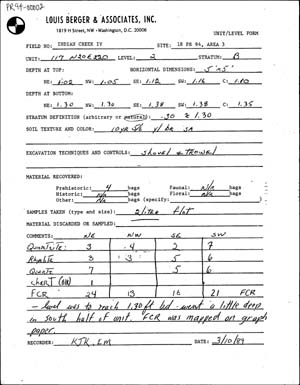 PR94-00002
LOUIS BERGER & ASSOCIATES, INC.
1819 H Street, NW - Washington, D.C. 20006
UNIT/LEVEL FORM
FIELD NO: INDIAN CREEK IV SITE: 18 PR 94, AREA 3
UNIT: 117 N20E820 LEVEL: 2 STRATUM: B
DEPTH AT TOP: HORIZONTAL DIMENSIONS: 5'x5'
NE: 1.02 NW: 1.05 SE: 1.12 SW: 1.16 C: 1.10
DEPTH AT BOTTOM:
NE: 1.30 NW: 1.30 SE: 1.38 SW: 1.38 C: 1.35
STRATUM DEFINITION (arbitrary or natural): .30 1.30
SOIL TEXTURE AND COLOR: 10YR 5/6 yl br SA
EXCAVATION TECHNIQUES AND CONTROLS: shovel & trowel
MATERIAL RECOVERED:
Prehistoric: 4 bags Faunal: N/A bags
Historic: N/A bags Floral: N/A bags
Other: N/A bags (specify: )
SAMPLES TAKEN (type and size): 2 liter flot
MATERIAL DISCARDED OR SAMPLED:
COMMENTS: NE NW SE SW
Quartzite: 3 4 2 7
Rhyolite 3 3 5 6
Quartz 7 5 6
CHERT 1
FCR 24 13 16 21 FCR
- level was to reach 1.30 ft bd - went a little deep
in south half of unit. FCR was mapped on graph
paper.
RECORDER: KTK, LM DATE: 3/10/89